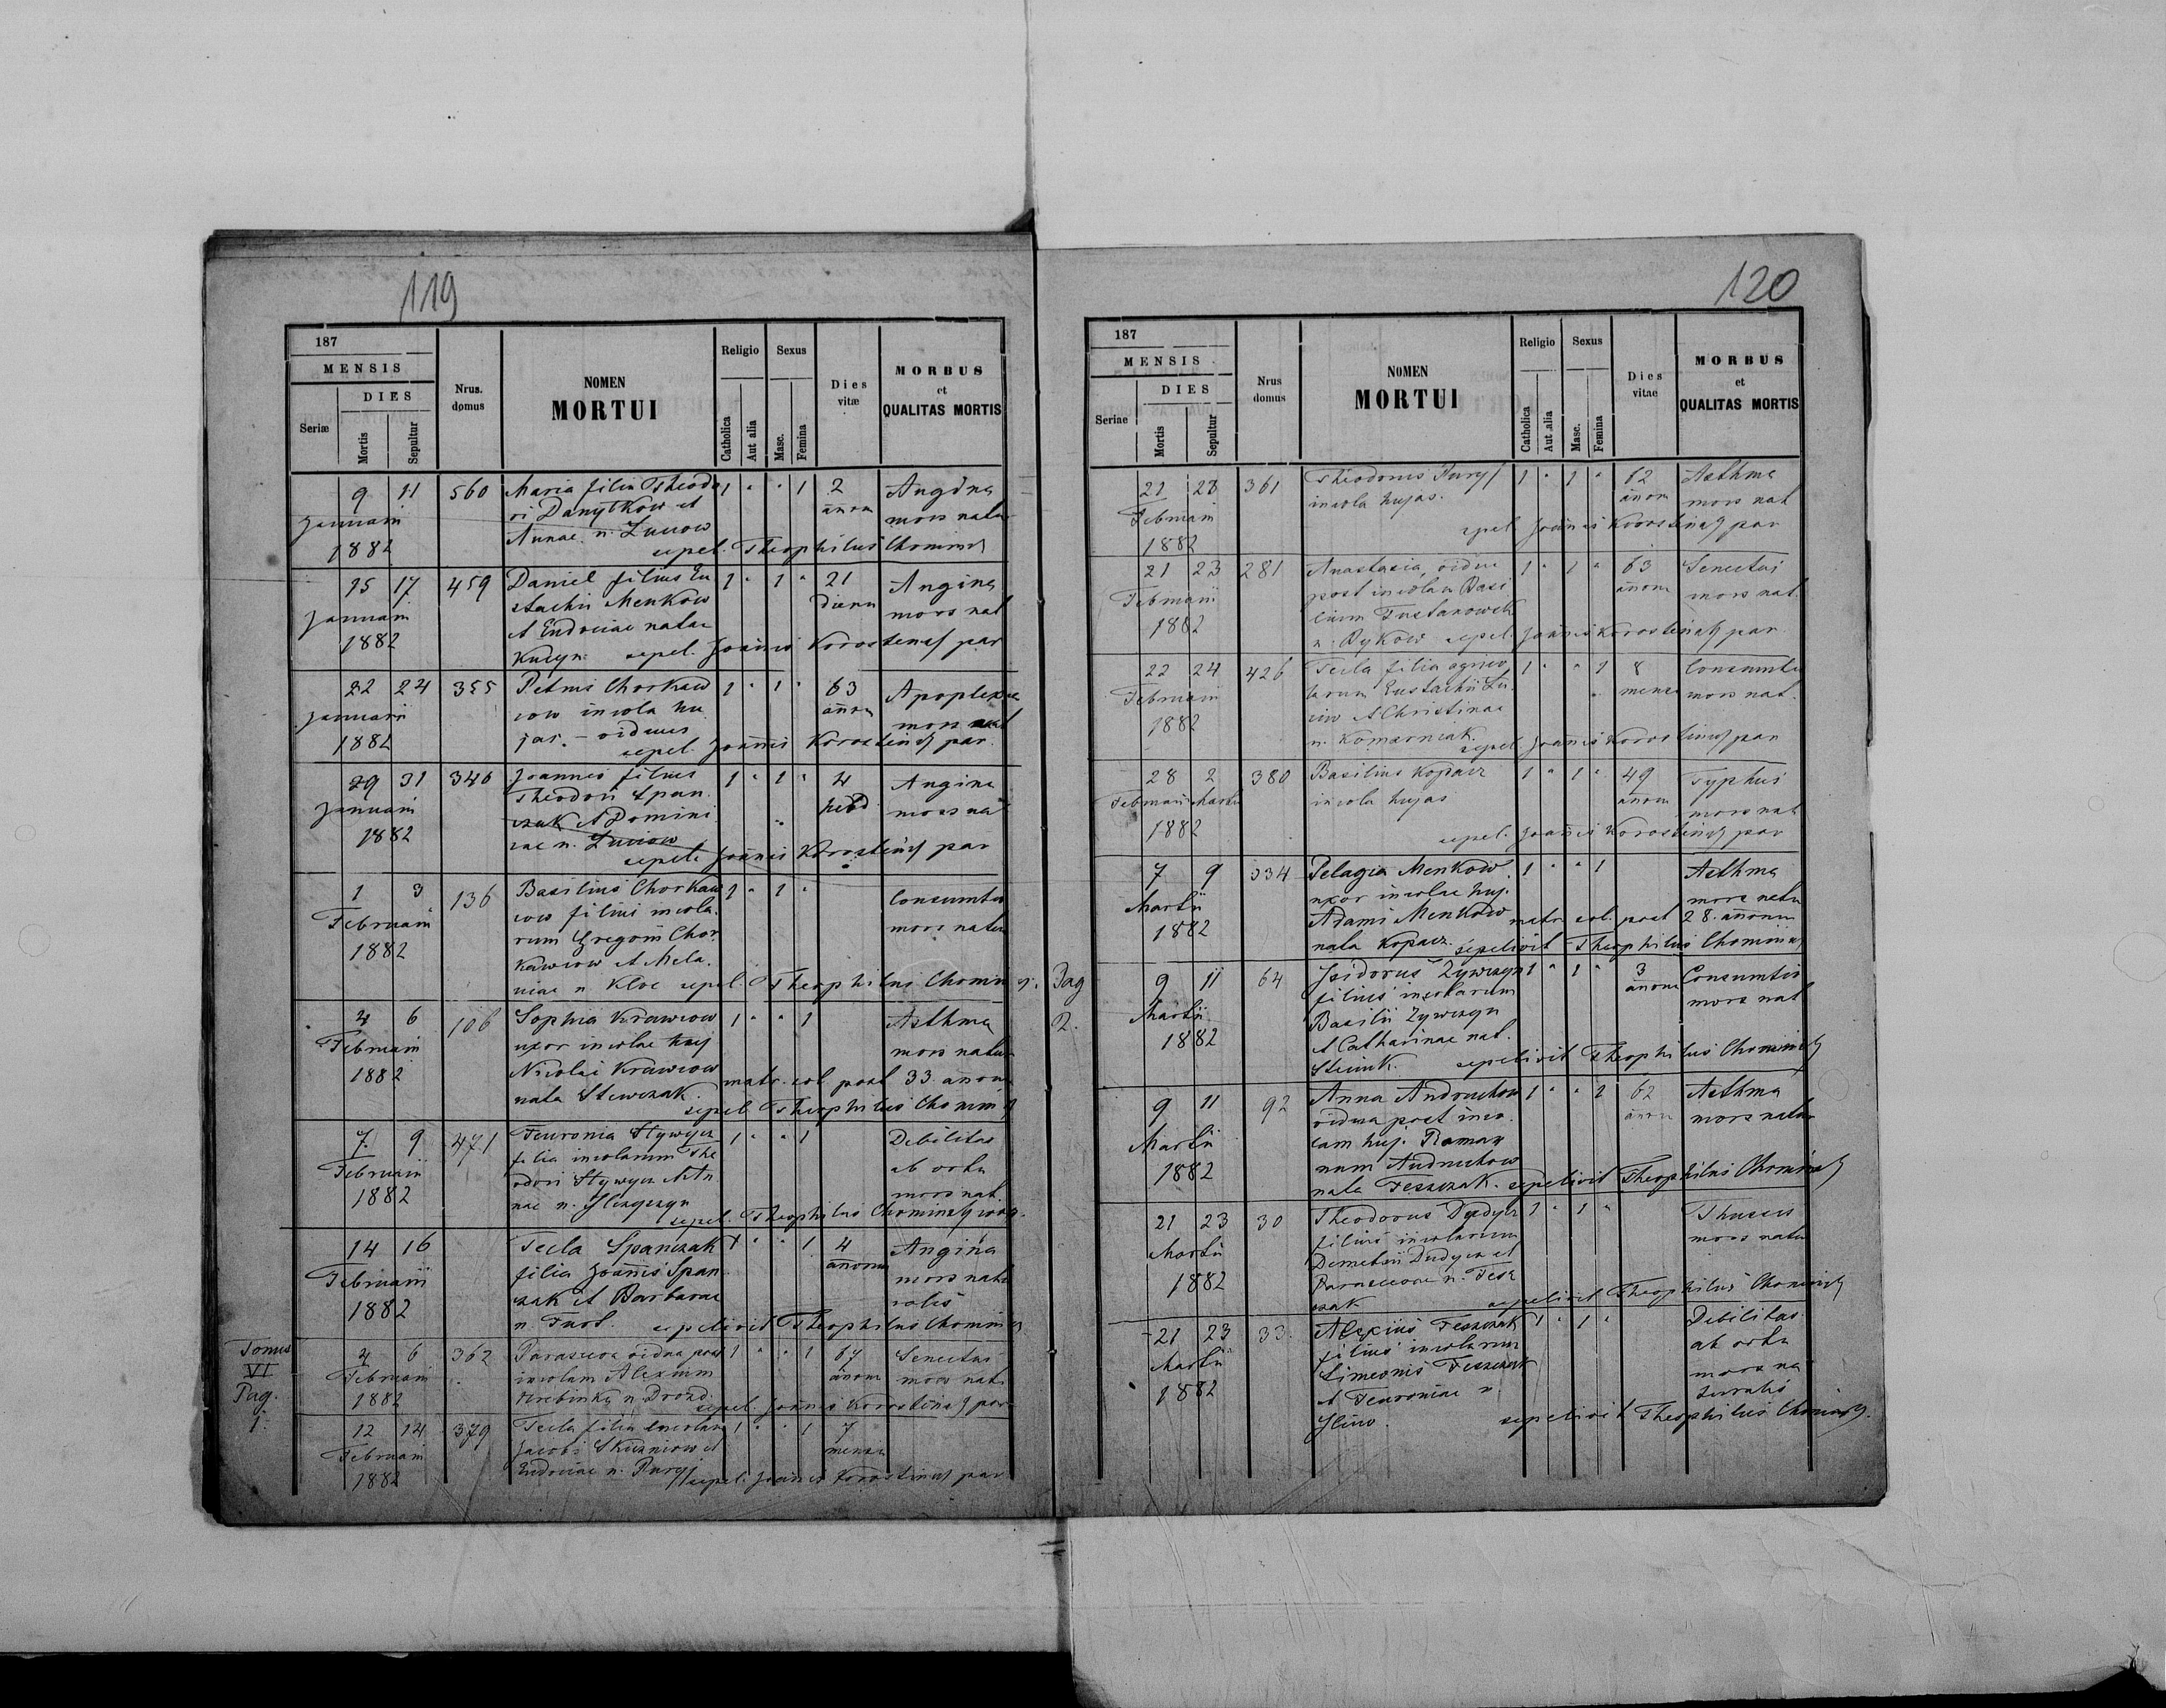 119
187
MENSIS
DIES
Seriæ
Mortis
Sepultur
Nrus. domus
NOMEN
MORTUI
Religio
Catholica
Aut alia
Sexus
Masc.
Femina
Dies vitæ
MORBUS
et
QUALITAS MORTIS
9 11 560 Maria filia Theodo 1 " " 1 2 Angina
Januarii ri Danylkow et annor mors natu
1882 Annae n. Zuciow
sepel. Theophilus Chominsy
15 17 459 Daniel filius Eu 1 " 1 " 21 Angina
Januarii stachii Menkow dierum mors nat
1882 et Eudociae natae
sepel. Joannis Korostensy par
22 24 355 Petrus Chorkaw 1 " 1 " 63 Apoplexia
Januarii cow incola hu annor mors nat
1882 jas. – viduus
sepel. Joannis Korostensy par.
29 31 346 Joannes filius 1 " 1 " 4 Angina
Januarii Theodori Span hebd mors na
1882 czak et Domini
cae n. Zuciow
sepel. Joannis Korostensy par
1 3 136 Basilius Chorkaw 1 " 1 " Consumtio
Februarii cow filius incola mors natu
1882 rum Gregorii Chor
kawcow et Mela
niae n. Kloc sepel. Theophilus Chominsy.
4 6 106 Sophia Krawcow 1 " " 1 Asthma
Februarii uxor incolae huj mors natu
1882 Nicolai Krawcow
nata Stewczak. matr. col. post 33 annor
sepel Theophilus Chominsy
7 9 471 Feuronia 1 " " 1 Debilitas
Februarii filia incolarum The ab ortu
1882 odori et An mors nat.
nae n.
sepel. Theophilus Chominsy
14 16 Tecla Spanczak 1 " " 1 4 Angina
Februarii filia Joannis Span annorum mors natu
1882 czak et Barbarae ralis
n. sepelivit Theophilus Chominsy
Tomus
VI
Pag.
1.
4 6 362 Parascева vidua post 1 " " 1 67 Senectus
Februarii incolam Alexium annor mors nat.
1882 n. Drozd.
sepel. Joannis Korostensy par
12 14 379 Tecla filia incolar 1 " " 1 7
Februarii Jacobi et mensi
1882 Eudociae n.
sepel. Joannis Korostensy par
120
187
MENSIS
DIES
Seriae
Mortis
Sepultur
Nrus domus
NOMEN
MORTUI
Religio
Catholica
Aut alia
Sexus
Masc.
Femina
Dies vitae
MORBUS
et
QUALITAS MORTIS
21 23 361 Theodorus 1 " 1 " 62 Asthma
Februarii incola hujas. annor mors nat
1882 sepel Joannis Korostensy par
21 23 281 Anastasia vidua 1 " 1 " 63 Senectus
Februarii post incolam Basi annor mors nat.
1882 lium Fustanowsk
n. Bykow sepel. Joannis Korostensy par.
22 24 426 Tecla filia agrico 1 " " 1 8 Consumtio
Februarii larum Eustachii Zu mensi mors nat.
1882 ciw et Christinae
n. Komarniak.
sepel Joannis Korostensy par
28 2 380 Basilius Kopacz 1 " 1 " 49 Typhus
Februarii Martii incola hujas annor mors nat
1882 sepel. Joannis Korostensy par
7 9 334 Pelagia Menkow 1 " " 1 Asthma
Martii uxor incolae huj. mors natu
1882 Adami Menkow matr. col. post 28. annorum
nata Kopacz. sepelivit Theophilus Chominsy
Pag
2.
9 11 64 Isidorus Zywczyn 1 " 1 " 3 Consumtio
Martii filius incolarum annor mors nat
1882 Basilii Zywczyn
et Catharinae nat.
sepelivit Theophilus Chominsy
9 11 92 Anna Andruchow 1 " " 1 62 Asthma
Martii vidua post inco annor mors natu
1882 lam huj. Roma
num Andruchow
nata Feszczak. sepelivit Theophilus Chominsy
21 23 30 Theodorus Dydycz 1 " 1 " Thussis
Martii filius incolarum mors natu
1882 Demetrii Dudycz et
Parascevae n. Fesz
czak sepelivit Theophilus Chominsy
21 23 33. Alexius Feszczak 1 " 1 " Debilitas
Martii filius incolarum ab ortu
1882 Simeonis Feszczak mors na
et Feuroniae n. turalis
sepelivit Theophilus Chominsy.